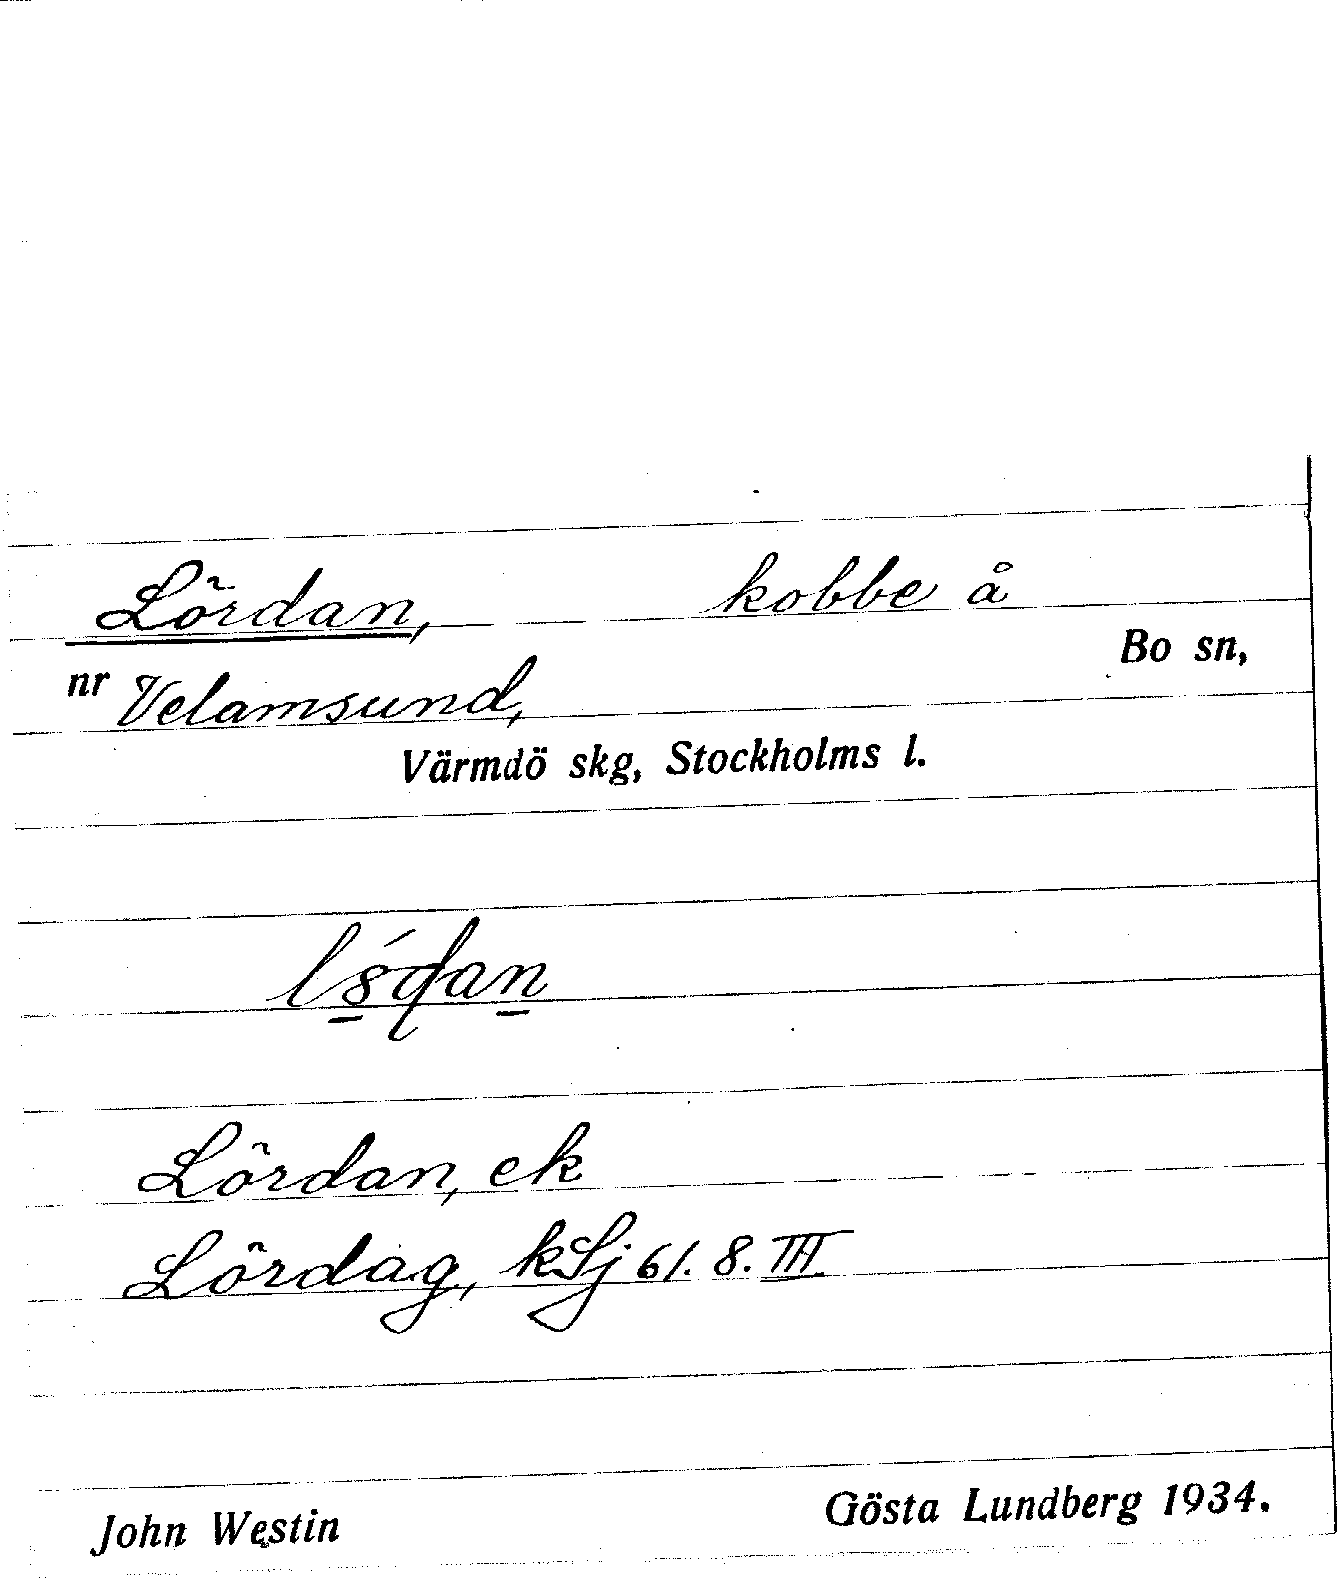 Lördan, kobbe å
Bo sn,
nr Velamsund,
Värmdö skg, Stockholms l.
Lördan, ek
Lördag, kSj 61. 8. III
John Westin Gösta Lundberg 1934.